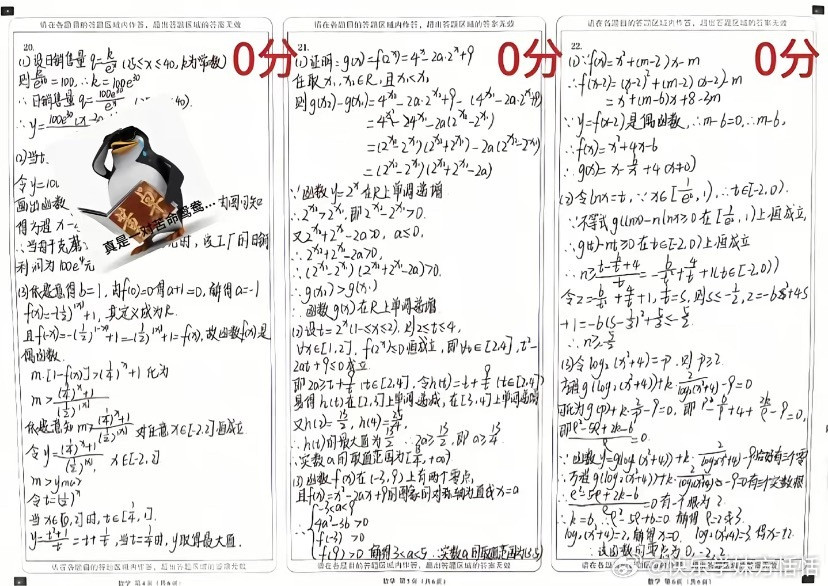 请在各题目的答题区域内作答，超出答题区域的答案无效
20.
0分
(1)设日销售量 q=k/e^x (25≤x≤40, k为常数)
则 k/e^30=100, ∴k=100e^30
∴日销售量 q=100e^30/e^x
(2)当t
令y=100
画出函数
由图可知
得方程
∴当每千克
元时，该工厂的日销
利润为100e^4元
真是一对苦命鸳鸯...
(3)依题意得b=1, 由f(0)=0得a+1=0, 解得a=-1
f(x)=-(1/2)^|x|+1, 其定义域为R.
且f(-x)=-(1/2)^|-x|+1=-(1/2)^|x|+1=f(x), 故函数f(x)是
偶函数.
m·[1-f(x)]>(1/4)^x+1 化为
m>((1/4)^x+1)/(1/2)^|x|
依题意知m>((1/4)^x+1)/(1/2)^|x| 对任意x∈[-2,2]恒成立
令y=((1/4)^x+1)/(1/2)^|x| x∈[-2,2]
m>ymax
令t=(1/2)^x
当x∈[0,2]时, t∈[1/4,1].
y=(t²+1)/t=t+1/t, 当t=1/4时, y取得最大值.
请在各题目的答题区域内作答，超出答题区域的答案无效
数学 第4页（共6页）
请在各题目的答题区域内作答，超出答题区域的答案无效
21.
0分
(1)证明: g(x)=f(2^x)=4^x-2a·2^x+9
任取x₁,x₂∈R, 且x₁<x₂
则g(x₂)-g(x₁)=4^x₂-2a·2^x₂+9-(4^x₁-2a·2^x₁+9)
=4^x₂-4^x₁-2a(2^x₂-2^x₁)
=(2^x₂-2^x₁)(2^x₂+2^x₁)-2a(2^x₂-2^x₁)
=(2^x₂-2^x₁)(2^x₂+2^x₁-2a)
∵函数y=2^x在R上单调递增
∴2^x₂>2^x₁, 即2^x₂-2^x₁>0.
又2^x₂+2^x₁-2a>0, a≤0,
∴2^x₂+2^x₁-2a>0,
∴(2^x₂-2^x₁)(2^x₂+2^x₁-2a)>0.
∴g(x₂)>g(x₁)
∴函数g(x)在R上单调递增
(2)设t=2^x(1≤x≤2), 则2≤t≤4,
∀x∈[1,2], f(2^x)≤0恒成立, 即∀t∈[2,4], t²-
2at+9≤0成立
即2a≥t+9/t, t∈[2,4], 令h(t)=t+9/t(t∈[2,4])
易得h(t)在[2,3]上单调递减, 在[3,4]上单调递增
又h(2)=13/2, h(4)=25/4,
∴h(t)的最大值为13/2 ∴2a≥13/2, 即a≥13/4
∴实数a的取值范围为[13/4,+∞)
(3)函数f(x)在(-3,9)上有两个零点,
且f(x)=x²-2ax+9的图象的对称轴为直线x=a
-3<a<9
4a²-36>0
f(-3)>0
f(9)>0 解得3<a<5
请在各题目的答题区域内作答，超出答题区域的答案无效
数学 第5页（共6页）
请在各题目的答题区域内作答，超出答题区域的答案无效
22.
0分
(1)∵f(x)=x²+(m-2)x-m
∴f(x-2)=(x-2)²+(m-2)(x-2)-m
=x²+(m-6)x+8-3m
∵y=f(x-2)是偶函数, ∴m-6=0, ∴m=6,
∴f(x)=x²+4x-6
∴g(x)=x-6/x+4(x≠0)
(2)令lnx=t, ∵x∈[1/e²,1), ∴t∈[-2,0).
∵不等式g(lnx)-nlnx≥0在[1/e²,1)上恒成立,
∴g(t)-nt≥0在t∈[-2,0)上恒成立
∴n≥(t-6/t+4)/t=-6/t²+4/t+1(t∈[-2,0))
令z=-6/t²+4/t+1, 1/t=s, 则s≤-1/2, z=-6s²+4s
+1=-6(s-1/3)²+5/3≤-5/2
∴n≥-5/2
(3)令log₂(x²+4)=p, 则p≥2.
方程g(log₂(x²+4))+k·2/log₂(x²+4)-9=0
可化为g(p)+k·2/p-9=0, 即p-6/p+4+2k/p-9=0,
即(p²-5p+2k-6)/p=0.
∴(p²-5p+2k-6)/p=0有一个根为2
∴k=6, ∴p²-5p+6=0 解得p=2或3
log₂(x²+4)=2, 解得x=0. log₂(x²+4)=3 得x=±2
∴该函数的零点为0, -2, 2.
数学 第6页（共6页）